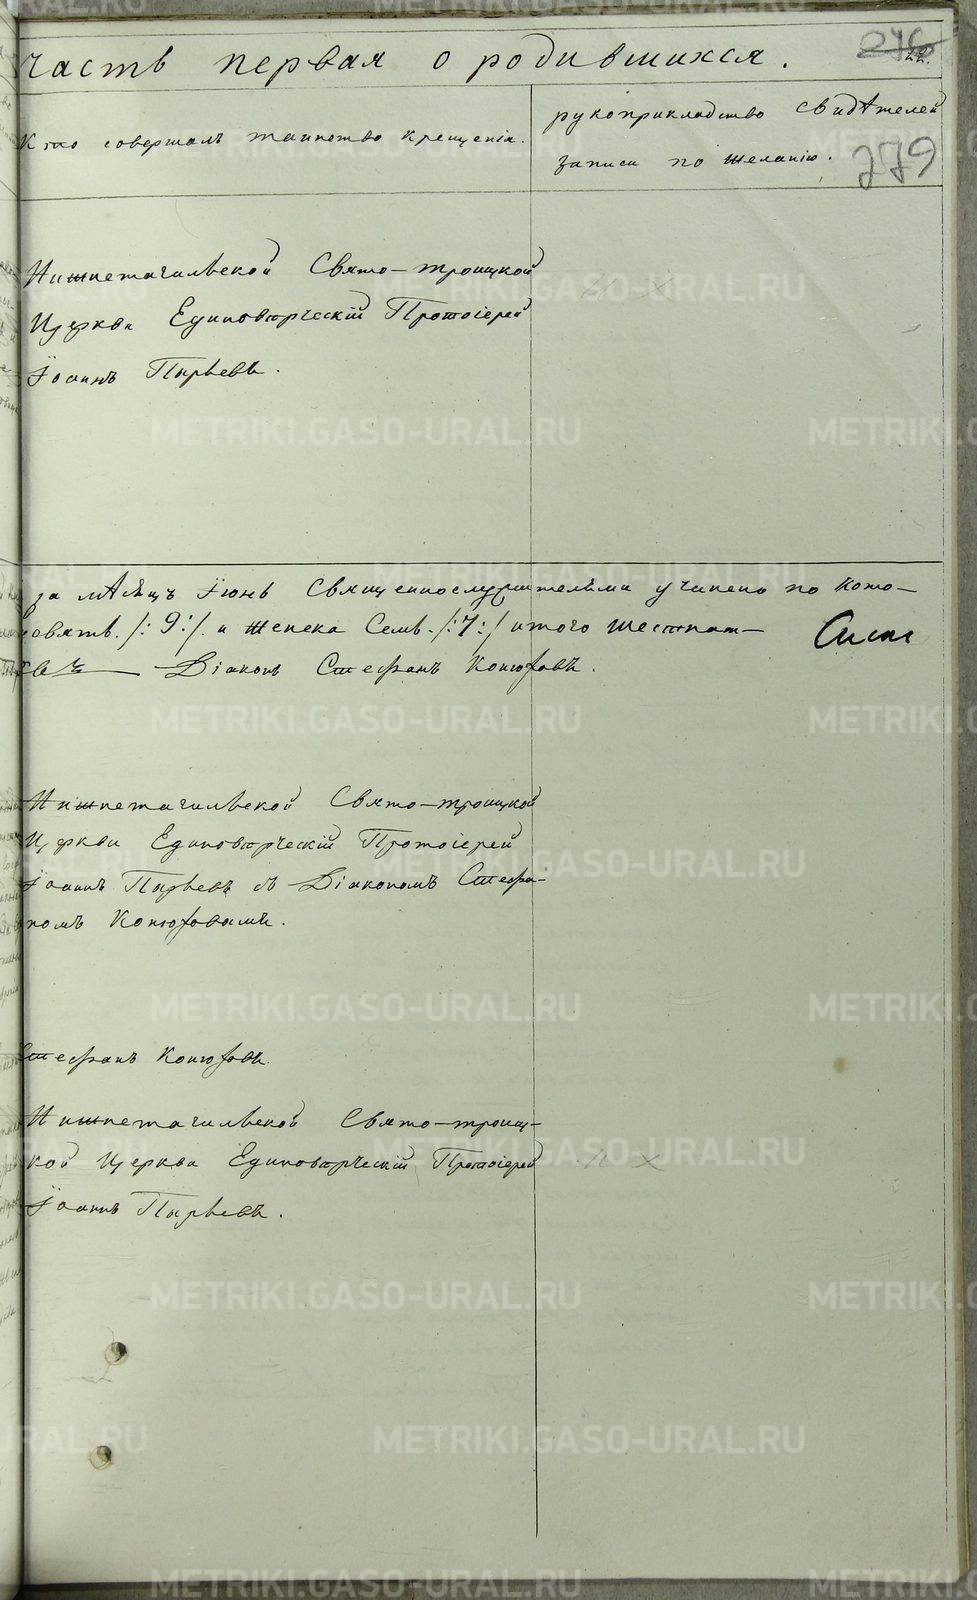 часть первая о родившихся.
22.
Кто совершалъ таинство крещенія.
рукоприкладство свидѣтелей
записи по желанію.
279
Нижнетагильской Свято-троицкой
Церкви Единовѣрческій Протоіерей
Іоаннъ Пырьевъ.
за мѣсяцъ Іюнь Священнослужителями учинено по кото-
девять /:9:/. и женска Семь. /:7:/ итого шестнат-
Діаконъ Стефанъ Конюховъ.
Нижнетагильской Свято-троицкой
Церкви Единовѣрческій Протоіерей
Іоаннъ Пырьевъ съ Діакономъ Стефа-
номъ Конюховымъ.
Стефанъ Конюховъ.
Нижнетагильской Свято-троиц-
кой Церкви Единовѣрческій Протоіерей
Іоаннъ Пырьевъ.
METRIKI.GASO-URAL.RU